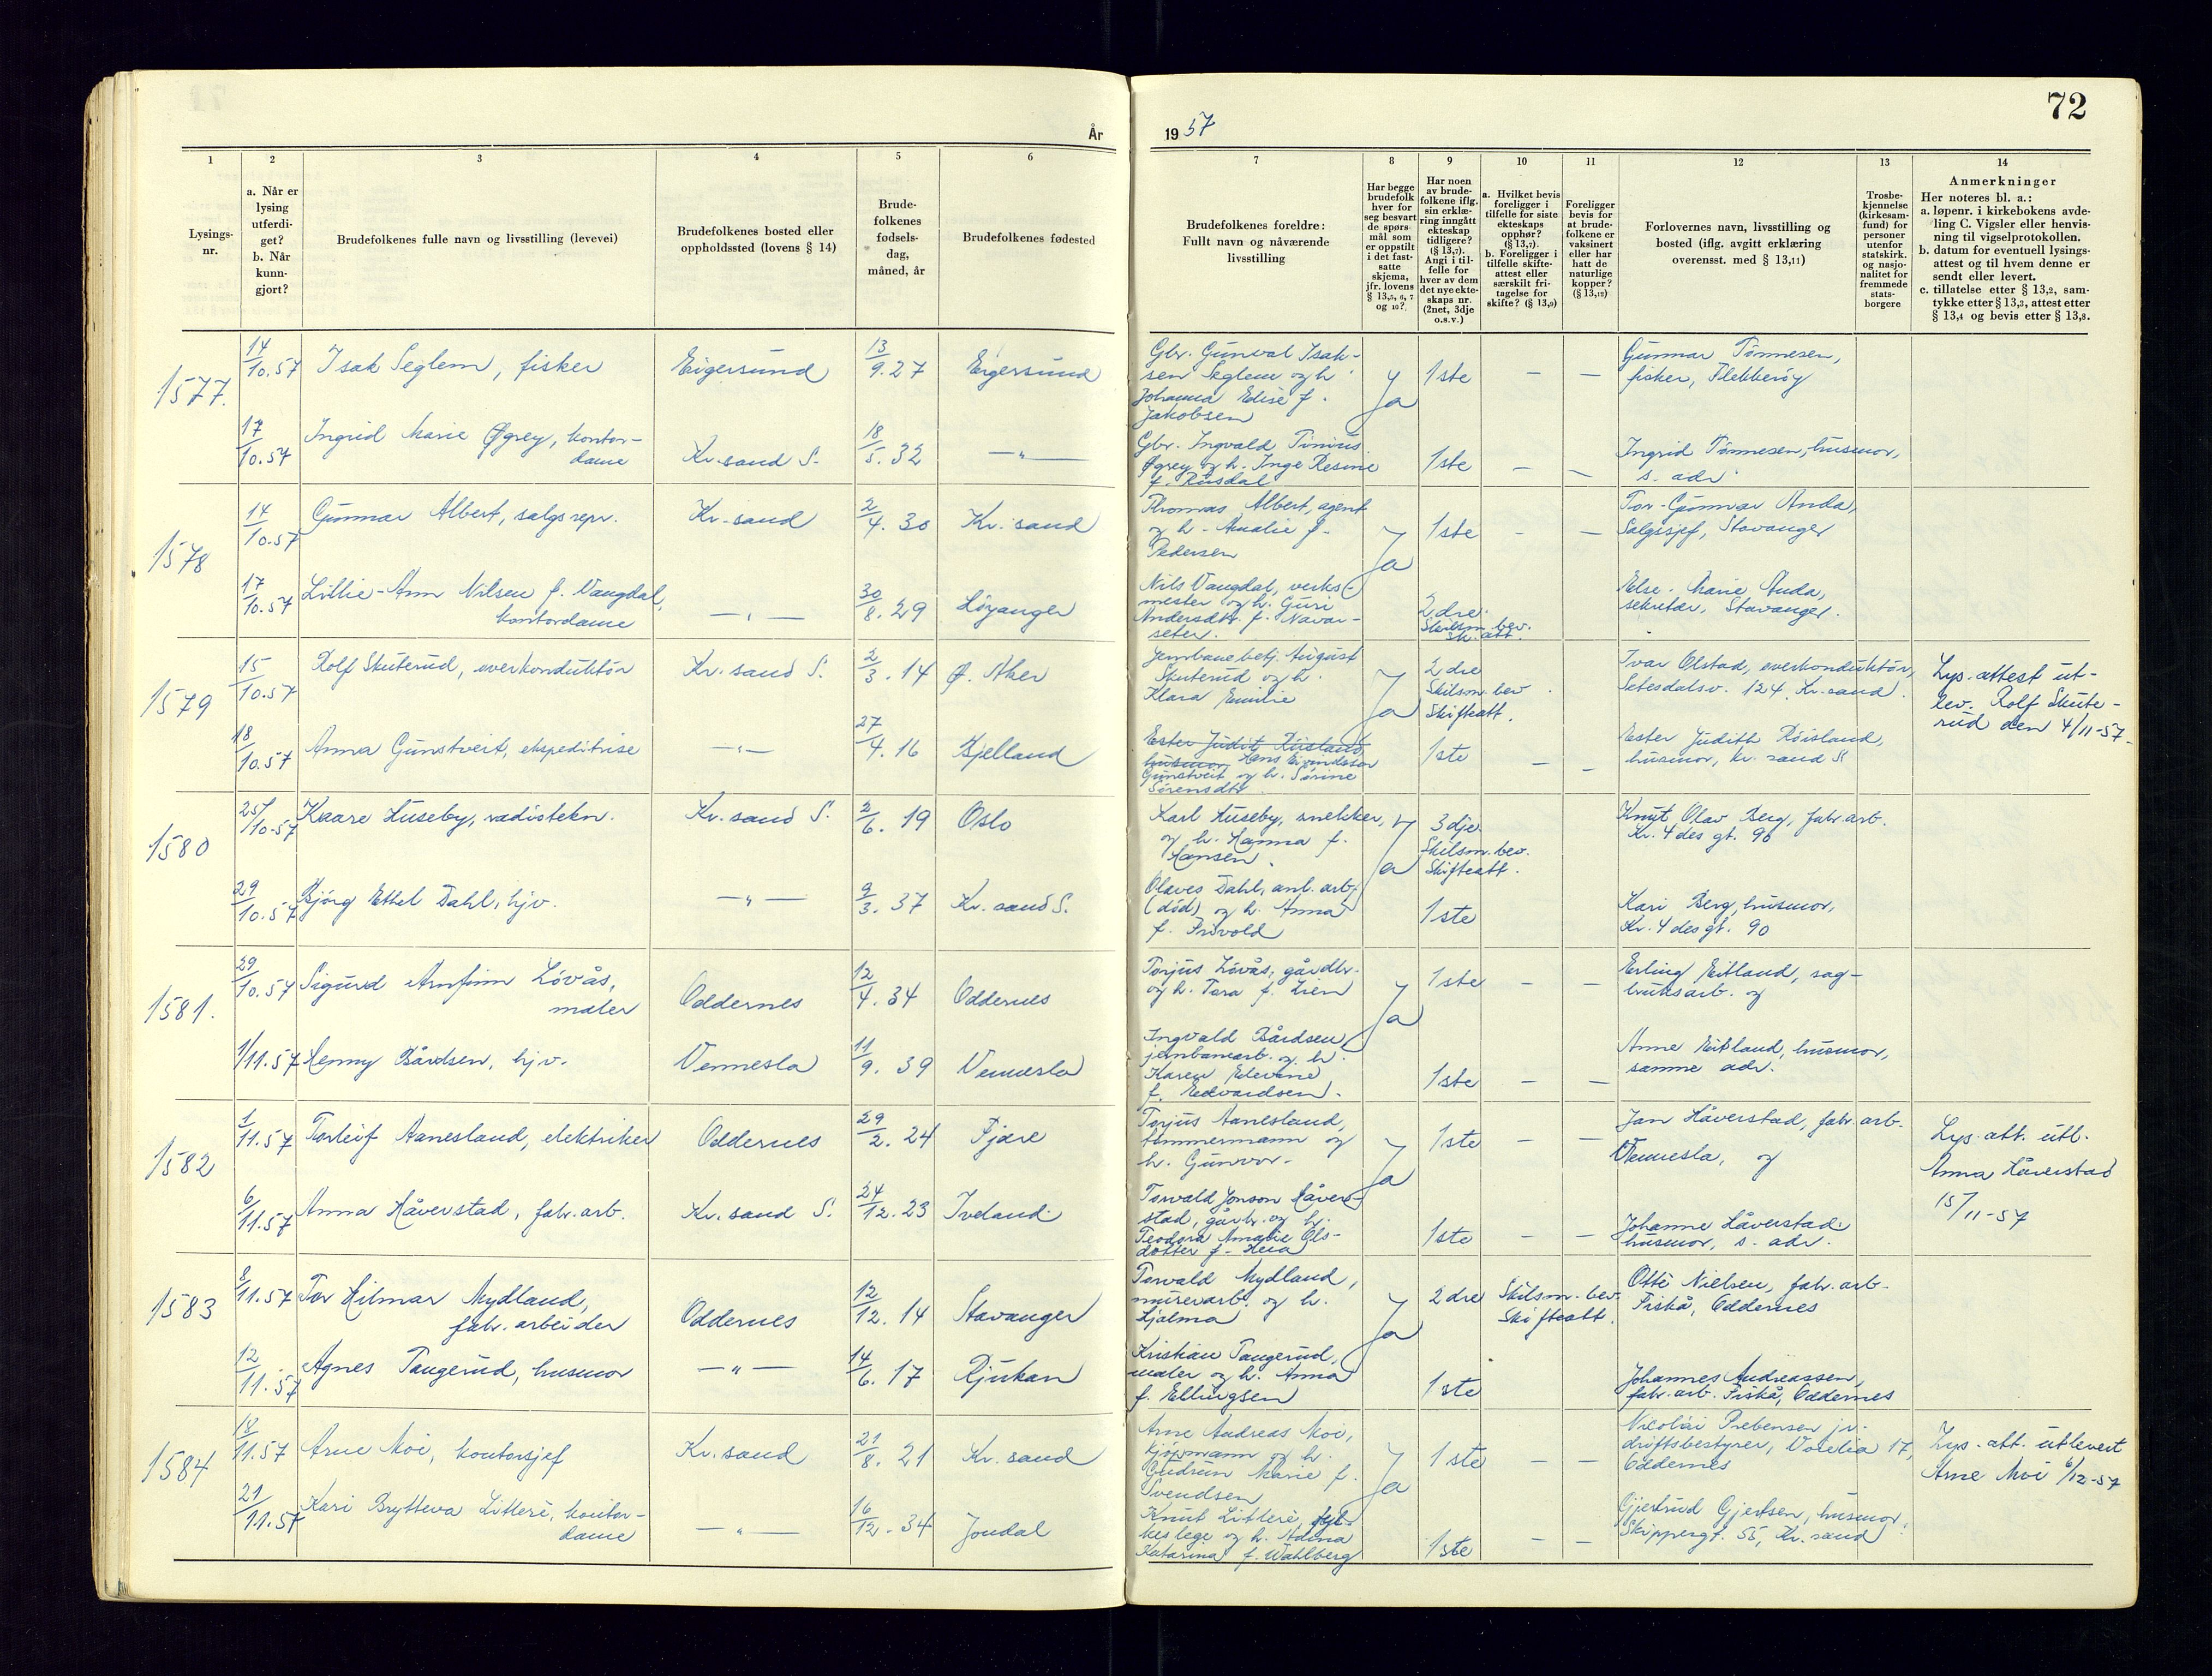 72
År
19 57
1
2
3
4
5
6
7
8
9
10
11
12
13
14
Lysings-
nr.
a. Når er
lysing
utferdi-
get?
b. Når
kunn-
gjort?
Brudefolkenes fulle navn og livsstilling (levevei)
Brudefolkenes bosted eller
oppholdssted (lovens § 14)
Brude-
folkenes
fødsels-
dag,
måned, år
Brudefolkenes fødested
Brudefolkenes foreldre:
Fullt navn og nåværende
livsstilling
Har begge
brudefolk
hver for
seg besvart
de spørs-
mål som
er oppstilt
i det fast-
satte
skjema,
jfr. lovens
§ 13,5, 6, 7
og 10?
Har noen
av brude-
folkene iflg.
sin erklæ-
ring inngått
ekteskap
tidligere?
(§ 13,7).
Angi i til-
felle for
hver av dem
det nye ekte-
skaps nr.
(2net, 3dje
o.s.v.)
a. Hvilket bevis
foreligger i
tilfelle for siste
ekteskaps
opphør?
(§ 13,7).
b. Foreligger i
tilfelle skifte-
attest eller
særskilt fri-
tagelse for
skifte? (§ 13,9)
Foreligger
bevis for
at brude-
folkene er
vaksinert
eller har
hatt de
naturlige
kopper?
(§ 13,12)
Forlovernes navn, livsstilling og
bosted (iflg. avgitt erklæring
overensst. med § 13,11)
Trosbe-
kjennelse
(kirkesam-
fund) for
personer
utenfor
statskirk.
og nasjo-
nalitet for
fremmede
stats-
borgere
Anmerkninger
Her noteres bl. a.:
a. løpenr. i kirkebokens avde-
ling C. Vigsler eller henvis-
ning til vigselprotokollen.
b. datum for eventuell lysings-
attest og til hvem denne er
sendt eller levert.
c. tillatelse etter § 13,2, sam-
tykke etter § 13,3, attest etter
§ 13,4 og bevis etter § 13,8.
1577.
14/10.57 Isak Seglem, fisker Eigersund 13/9.27 Eigersund
Gbr. Gunval Isak-
sen Seglem og h.
Johanna Elise f.
Jakobsen
Ja 1ste – –
Gunnar Tønnesen,
fisker, Flekkerøy
17/10.57 Ingrid Marie Øgrey, kontor-
dame Kr. sand S. 18/5.32 –"–
Gbr. Ingvald Tinius
Øgrey og h. Inge Resine
f. Rusdal
1ste – –
Ingrid Tønnesen, husmor,
s. adr.
1578
14/10.57 Gunnar Albert, salgsrepr. Kr. sand 2/4.30 Kr. sand
Thomas Albert, agent
og h. Amalie f.
Pedersen
Ja 1ste – –
Tor-Gunnar Anda,
Salgssjef, Stavanger
17/10.57 Lillie-Ann Nilsen f. Vangdal,
kontordame –"– 30/8.29 Høyanger
Nils Vangdal, verks-
mester og h. Guri
Andersdtr. f. Navar-
seter.
2dre.
Skilsm. bev.
sk. att.
Else-Marie Anda,
sekretær, Stavanger.
1579
15/10.57 Rolf Skuterud, overkonduktør Kr. sand S. 2/3.14 Ø. Aker
Jernbanebetj. August
Skuterud og h.
Klara Emilie
Ja 2dre
Skilsm. bev.
Skifteatt.
Ivar Olstad, overkonduktør,
Setesdalsv. 124, Kr. sand.
Lys. attest ut-
lev. Rolf Skute-
rud den 4/11-57.
18/10.57 Anna Gunstveit, ekspeditrise –"– 27/4.16 Bjelland
Ester Judit Röisland,
husmor, Hans Eivindsson
Gunstveit og h. Sørine
Sørensdtr.
1ste – –
Ester Judith Röisland,
husmor, Kr. sand S
1580
25/10-57 Kaare Huseby, radiotekn. Kr. sand S. 2/6.19 Oslo
Karl Huseby, snekker,
og h. Hanna f.
Hansen.
Ja 3dje
Skilsm. bev.
Skifteatt.
Knut Olav Berg, fabr. arb.
Kr. 4des gt. 90
29/10.57 Bjørg Ethel Dahl, hjv. –"– 9/3.37 Kr. sand S.
Olaves Dahl, anl. arb.
(død), og h. Anna
f. Frivold
1ste
Kari Berg, husmor,
Kr. 4des gt. 90
1581.
29/10.57 Sigurd Arnfinn Lövås,
maler Oddernes 12/4.34 Oddernes
Torjus Lövås, gårdbr.
og h. Tora f. Lien
Ja 1ste – –
Erling Eitland, sag-
bruksarb. og
1/11.57 Henny Bårdsen, hjv. Vennesla 11/9.39 Vennesla
Ingvald Bårdsen
jernbanearb. og h.
Karen Edevine
f. Edvardsen.
1ste – –
Anne Eitland, husmor,
samme adr.
1582
1/11.57 Torleif Aanesland, elektriker Oddernes 29/2.24 Fjære
Torjus Aanesland,
tømmermann og
h. Gunvor.
Ja 1ste – –
Jan Håverstad, fabr. arb.
Vennesla, og
Lys. att. utl.
Anna Håverstad
15/11-57
6/11.57 Anna Håverstad, fabr. arb. Kr. sand S. 24/12.23 Iveland.
Torvald Jonson Håver-
stad, gårbr. og h.
Teodora Amalie Ols-
dotter f. Heia
1ste – –
Johanne Håverstad.
husmor, s. adr.
1583
8/11.57 Tor Hilmar Mydland,
fabr. arbeider Oddernes 12/12.14 Stavanger
Torvald Mydland,
murerarb. og h.
Hjalma
Ja 2dre Skilsm. bev.
Skifteatt.
Otto Nielsen, fabr. arb.
Fiskå, Oddernes
12/11.57 Agnes Tangerud, husmor –"– 14/6.17 Rjukan
Kristian Tangerud,
maler og h. Anna
f. Ellingsen
1ste
Johannes Andreassen,
fabr. arb. Fiskå, Oddernes
1584
18/11.57 Arne Moi, kontorsjef Kr. sand 21/8.21 Kr. sand
Arne Andreas Moi,
kjøpmann og h.
Gudrun Marie f.
Svendsen
Ja 1ste – –
Nicolai Prebensen jr.
driftsbestyrer, Voielia 17,
Oddernes
Lys. att. utlevert
Arne Moi 6/12-57
21/11.57 Kari Brytteva Litleré, kontor-
dame –"– 16/12.34 Jondal
Knut Litleré, fyl-
keslege og h. Adena
Katarina f. Wahlberg
1ste – –
Gjertrud Gjertsen, husmor.
Skippergt. 55, Kr. sand